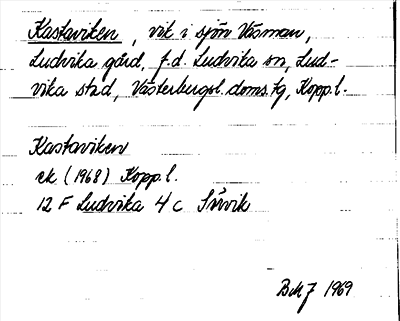 Kastaviken, vik i sjön Väsman,
Ludvika gård, f.d. Ludvika sn, Lud-
vika stad, Västerbergsl. doms. tg, Kopp. l.
Kastaviken
ek (1968) Kopp. l.
12 F Ludvika 4 c
1969